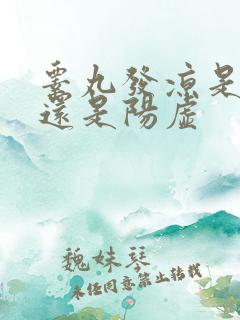 睾丸發涼是
還是陽虛
魏妹琴
未任同意禁止转载